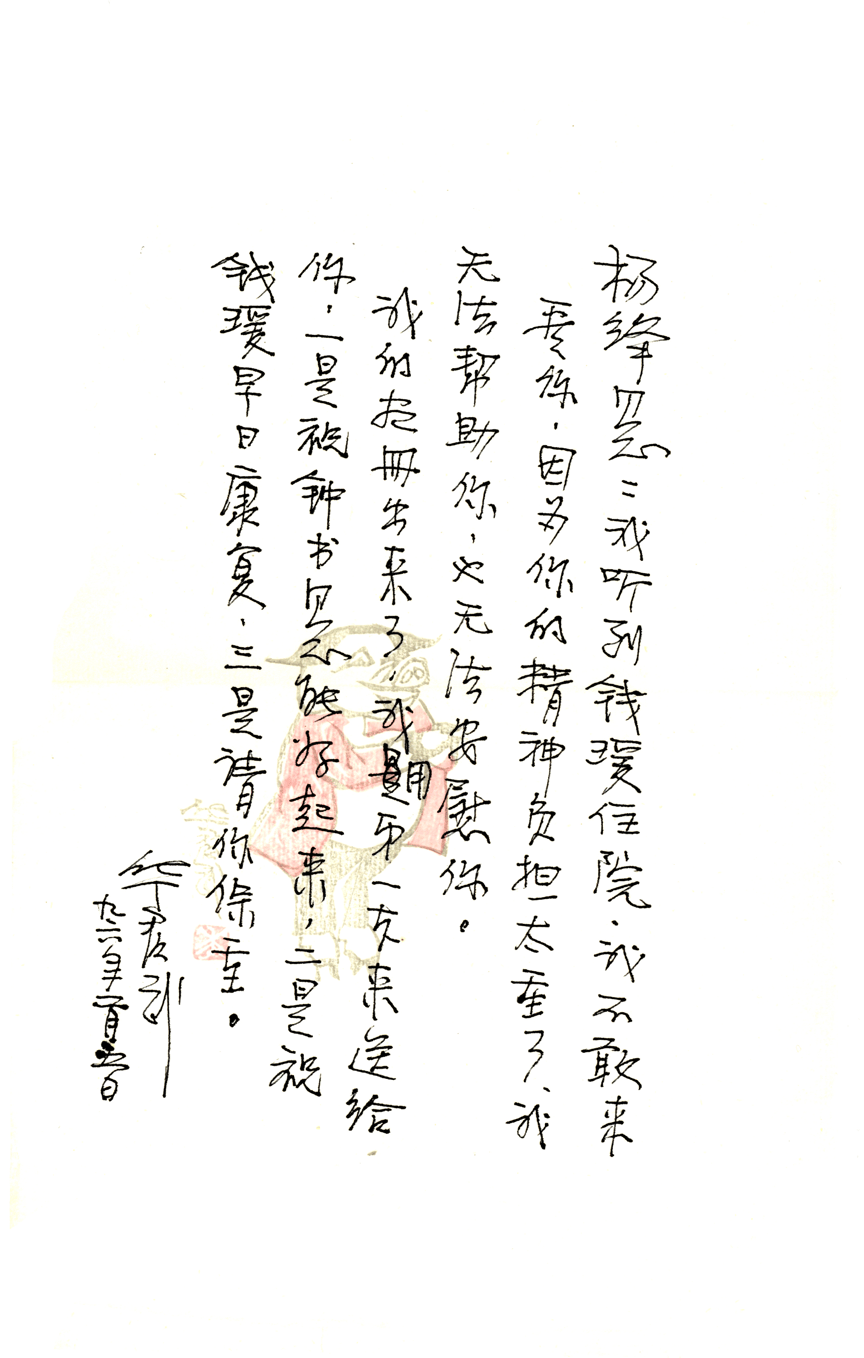 杨绛同志：我听到钱瑗住院、我不敢来
看你，因为你的精神负担太重了、我
无法帮助你，也无法安慰你。
我的画册出来了，我题用第一本来送给
你，一是祝钟书同志能好起来，二是祝
钱瑗早日康复，三是请你保重。
华君武
九六年一月五日